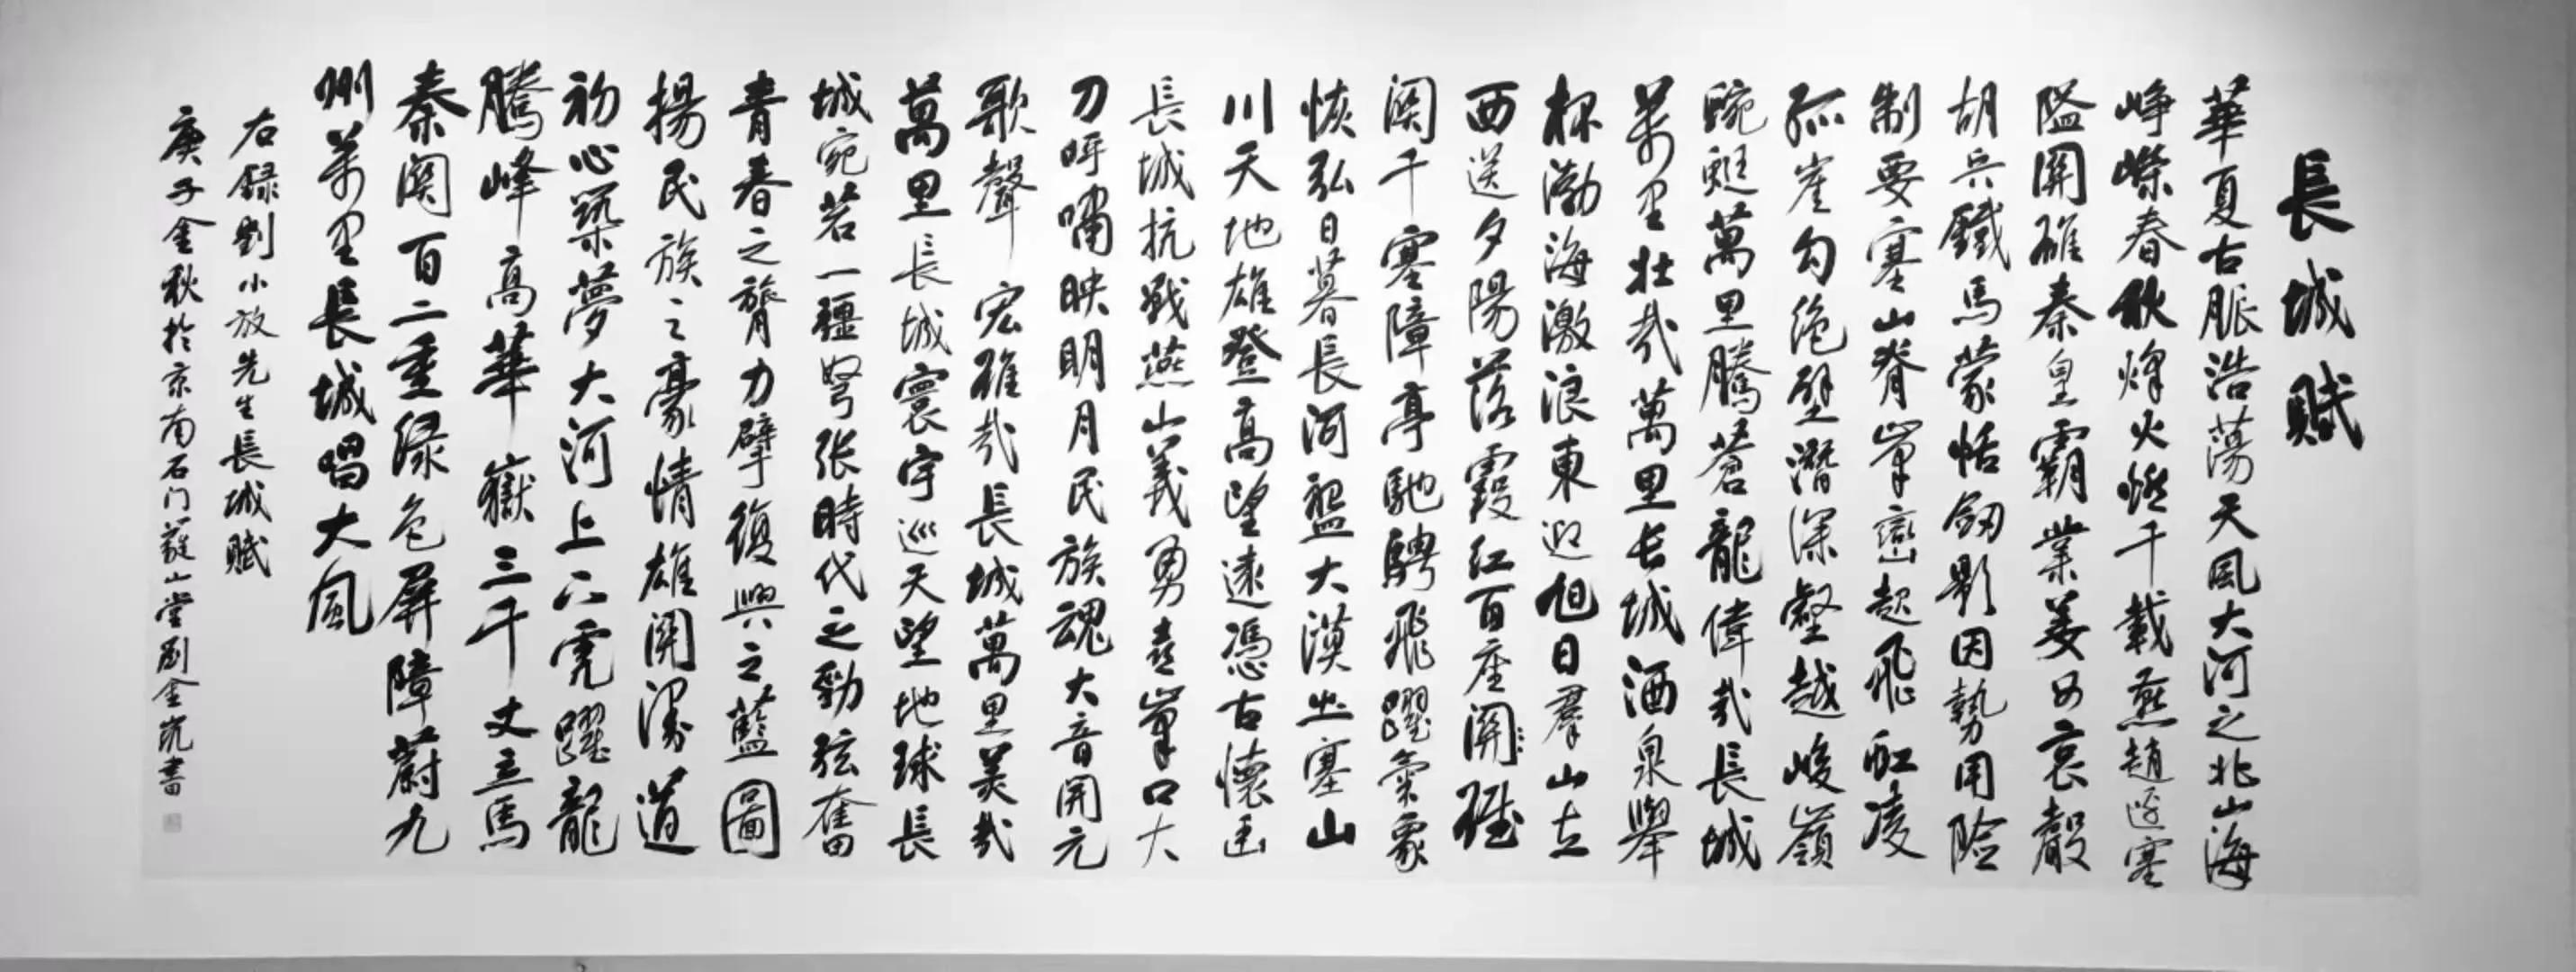 長城賦
華夏古脈浩蕩天風大河之北山海
崢嶸春秋烽火燃千載燕趙邊塞
隘關雄秦皇霸業姜女哀聲
胡兵鐵馬蒙恬劒影因勢用險
制要塞山脊峯巒起飛虹凌
孤崖勾絶壁潛深壑越峻嶺
蜿蜒萬里騰蒼龍偉哉長城
萬里壯哉萬里长城酒泉舉
杯渤海激浪東迎旭日羣山立
西送夕陽落霞紅百座關
關千塞障亭馳騁飛躍氣象
恢弘日暮長河盤大漠出塞山
川天地雄登高望遠憑古懷
長城抗戰燕山義勇喜峯口大
刀呼嘯映明月民族魂大音開元
歌聲宏雄哉長城萬里美哉
萬里長城寰宇巡天望地球長
城宛若一疆弩张時代之勁弦奮
青春之膂力擘復興之藍圖
揚民族之豪情雄關漫道
初心築夢大河上下虎躍龍
騰峰高華嶽三千丈立馬
秦関百二重绿色屏障蔚九
州萬里長城唱大風
右録劉小放先生長城賦
庚子金秋於京南石门山堂劉金凯書